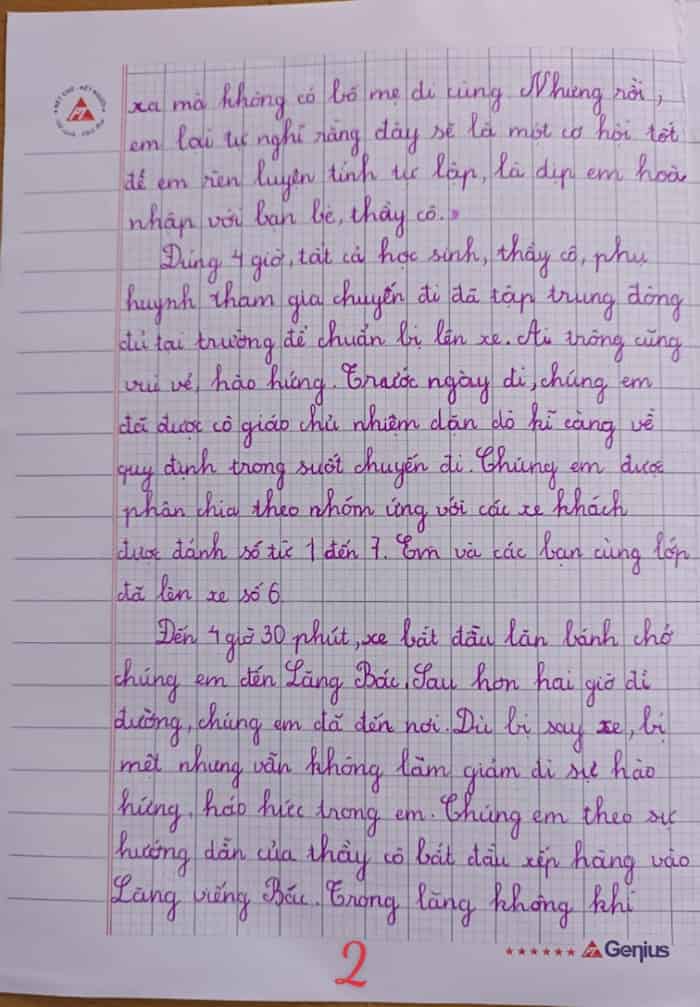 xa mà không có bố mẹ đi cùng Nhưng rồi,
em lại tự nghĩ rằng đây sẽ là một cơ hội tốt
để em rèn luyện tính tự lập, là dịp em hoà
nhập với bạn bè, thầy cô.
Đúng 4 giờ, tất cả học sinh, thầy cô, phụ
huynh tham gia chuyến đi đã tập trung đông
đủ tại trường để chuẩn bị lên xe. Ai trông cũng
vui vẻ, hào hứng. Trước ngày đi, chúng em
đã được cô giáo chủ nhiệm dặn dò kĩ càng về
quy định trong suốt chuyến đi. Chúng em được
phân chia theo nhóm ứng với các xe khách
được đánh số từ 1 đến 7. Em và các bạn cùng lớp
đã lên xe số 6
Đến 4 giờ 30 phút, xe bắt đầu lăn bánh chở
chúng em đến Lăng Bác. Sau hơn hai giờ đi
đường, chúng em đã đến nơi. Dù bị say xe, bị
mệt nhưng vẫn không làm giảm đi sự hào
hứng, háo hức trong em. Chúng em theo sự
hướng dẫn của thầy cô bắt đầu xếp hàng vào
Lăng viếng Bác. Trong lăng không khí
2
Genius